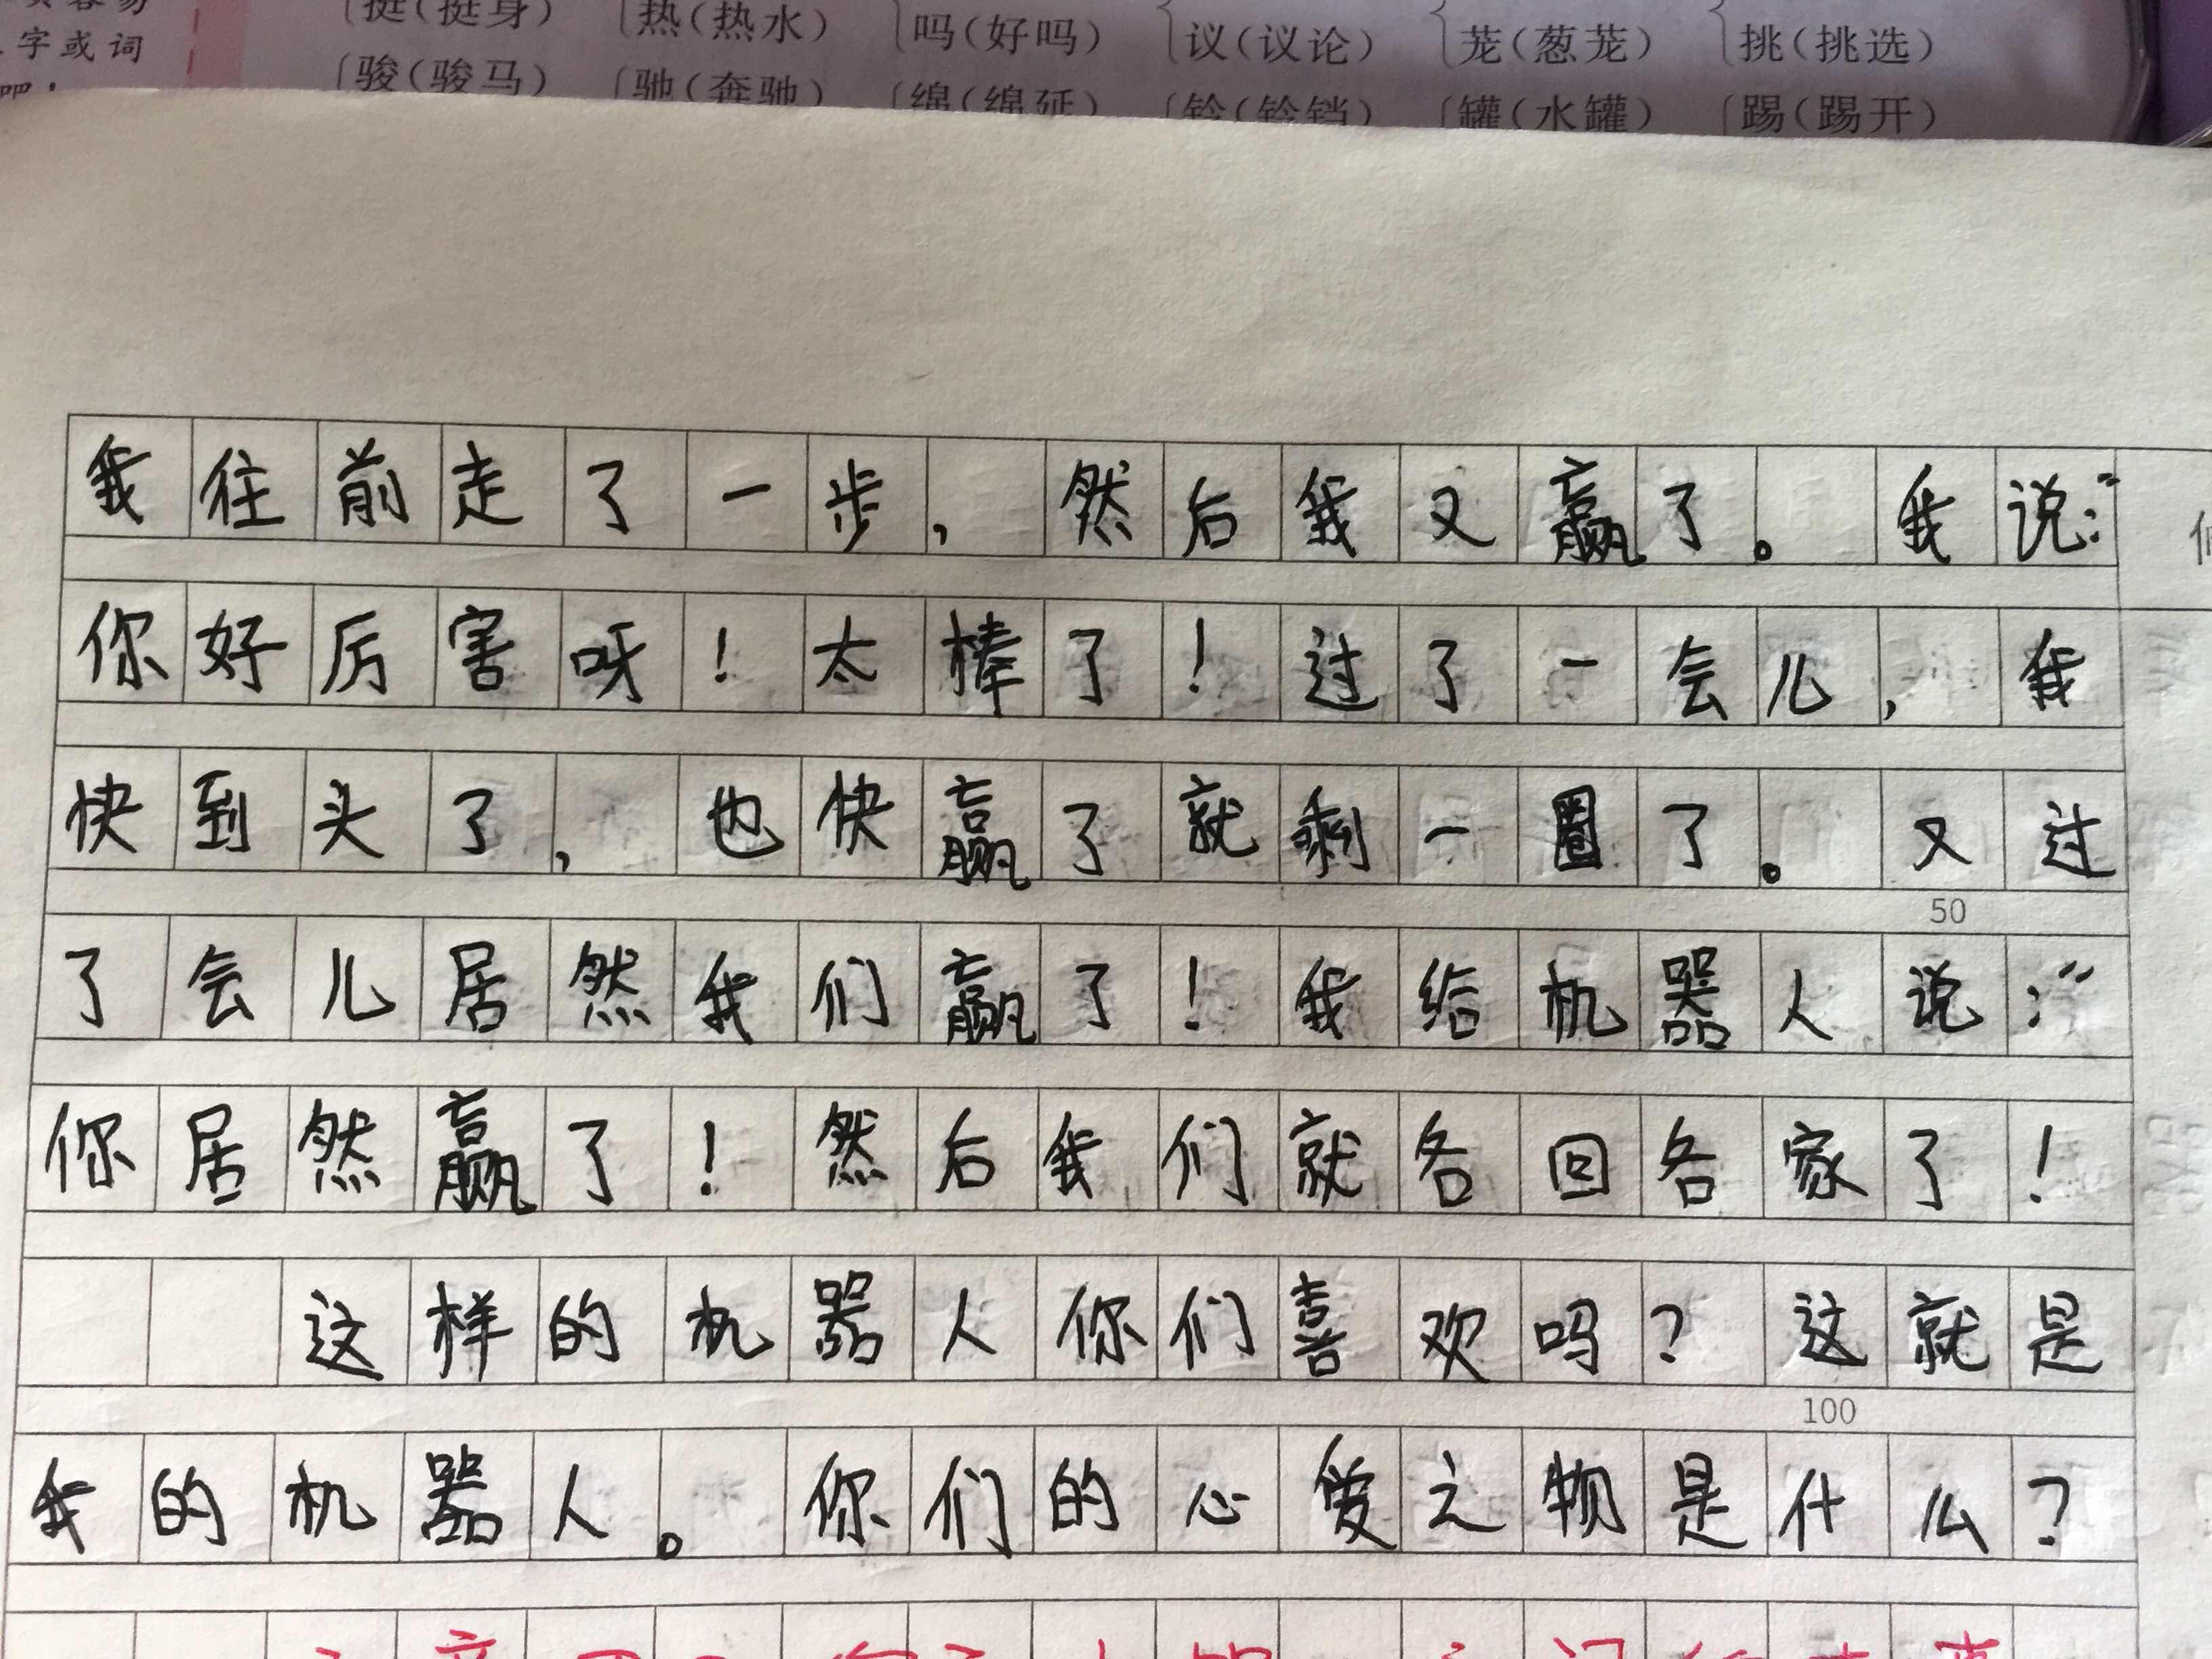 字或词
挺(挺身) 热(热水) 吗(好吗) 议(议论) 茏(葱茏) 挑(挑选)
骏(骏马) 驰(奔驰) 绵(绵延) 铃(铃铛) 罐(水罐) 踢(踢开)
我往前走了一步，然后我又赢了。我说：“
你好厉害呀！太棒了！过了一会儿，我
快到头了，也快赢了就剩一圈了。又过
50
了会儿居然我们赢了！我给机器人说：“
你居然赢了！然后我们就各回各家了！
这样的机器人你们喜欢吗？这就是
100
我的机器人。你们的心爱之物是什么？